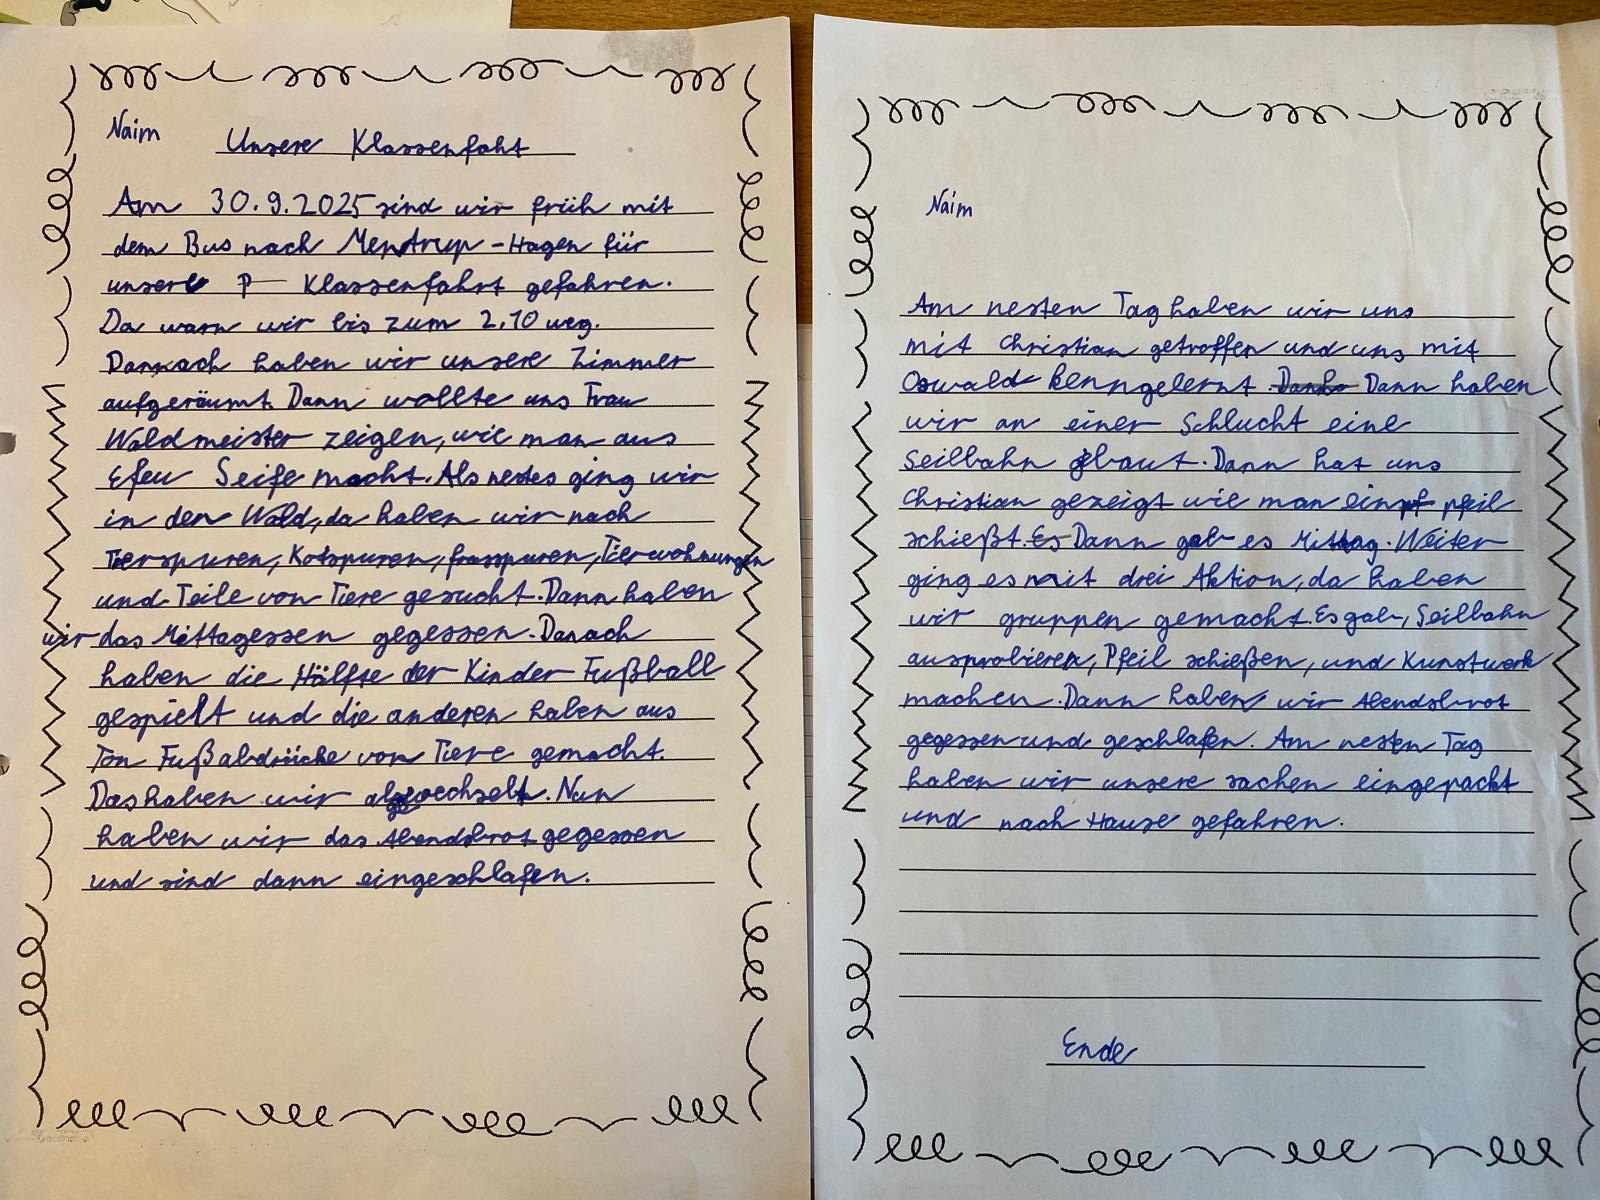 Naim
Unsere Klassenfaht
Am 30.9.2025 sind wir früh mit
dem Bus nach Mentrup-Hagen für
unsere Klassenfahrt gefahren.
Da warn wir bis zum 2.10 weg.
Dannach haben wir unsere Zimmer
aufgeräumt. Dann wollte uns Frau
Waldmeister zeigen, wie man aus
Efeu Seife macht. Als nestes ging wir
in den Wald, da haben wir nach
Tierspuren, Kotspuren, frasspuren, Tierwohnungen
und Teile von Tiere gesucht. Dann haben
wir das Mittagessen gegessen. Danach
haben die Hälfte der Kinder Fußball
gespielt und die anderen haben aus
Ton Fußabdrücke von Tiere gemacht.
Das haben wir abgewechselt. Nun
haben wir das Abendsbrot gegessen
und sind dann eingeschlafen.
Naim
Am nesten Tag haben wir uns
mit Christian getroffen und uns mit
Oswald kenngelernt. Dann haben
wir an einer Schlucht eine
Seilbahn gbaut. Dann hat uns
Christian gezeigt wie man ein pfeil
schießt. Dann gab es Mittag. Weiter
ging es mit drei Aktion, da haben
wir gruppen gemacht. Es gab, Seilbahn
ausprobieren, Pfeil schießen, und Kunstwerk
machen. Dann haben wir Abendsbrot
gegessen und geschlafen. Am nesten Tag
haben wir unsere sachen eingepackt
und nach Hause gefahren.
Ende